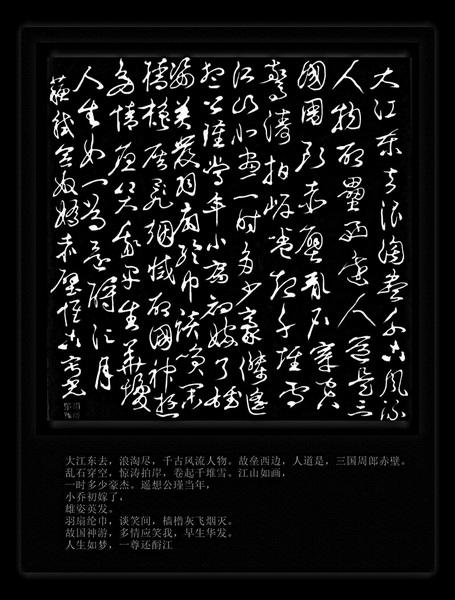 大江東去浪淘盡千古風流
人物故壘西邊人道是三
國周郎赤壁亂石穿空
驚濤拍岸卷起千堆雪
江山如畫一時多少豪傑遙
想公瑾當年小喬初嫁了雄
姿英發羽扇綸巾談笑間
檣櫓灰飛煙滅故國神遊
多情應笑我早生華髮
人生如一尊還酹江月
蘇軾念奴嬌赤壁懷古
大江东去，浪淘尽，千古风流人物。故垒西边，人道是，三国周郎赤壁。
乱石穿空，惊涛拍岸，卷起千堆雪。江山如画，
一时多少豪杰。遥想公瑾当年，
小乔初嫁了，
雄姿英发。
羽扇纶巾，谈笑间，樯橹灰飞烟灭。
故国神游，多情应笑我，早生华发。
人生如梦，一尊还酹江